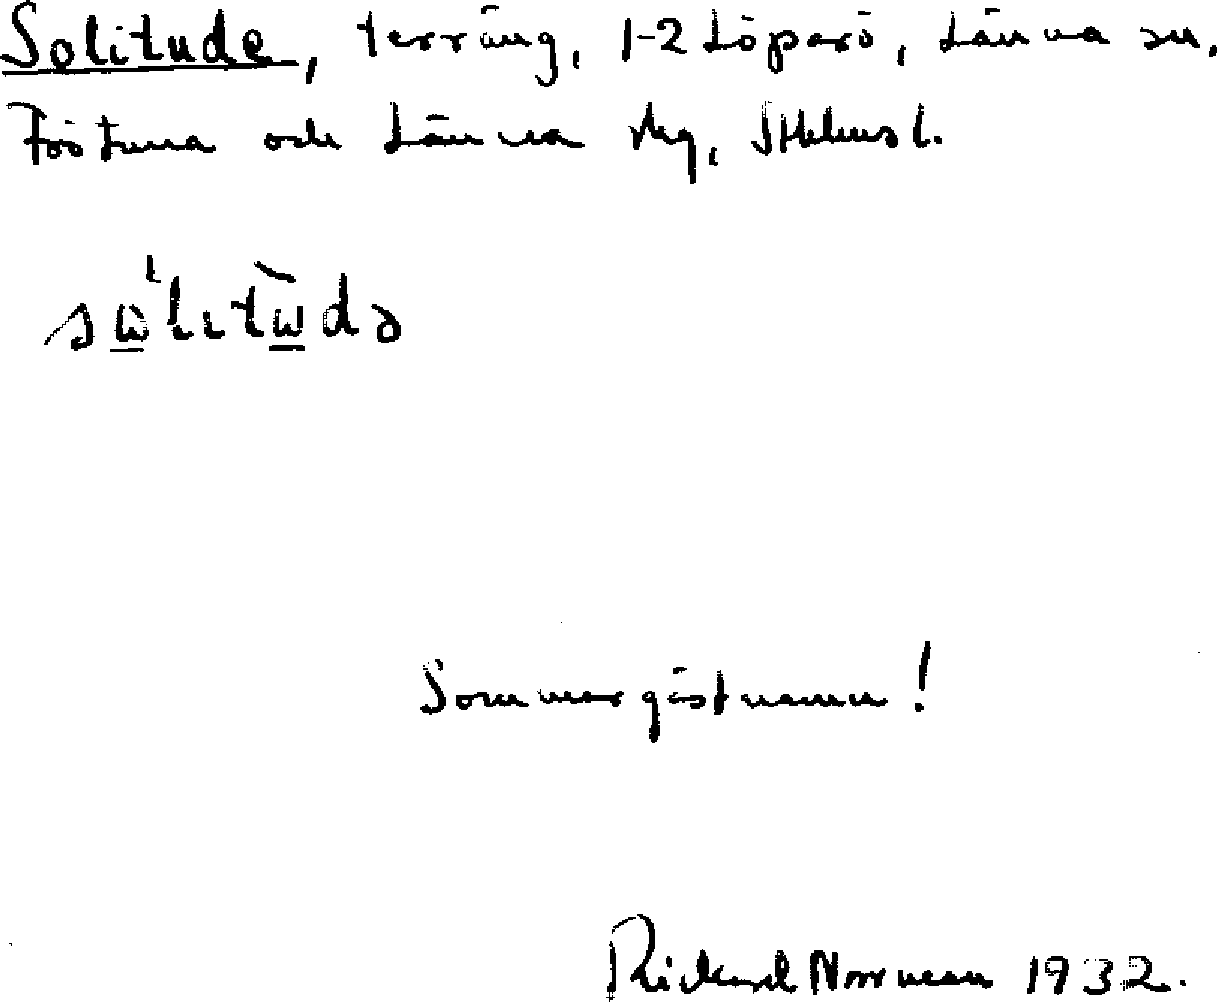 Solitude, terräng, 1-2 Löparö, Länna sn,
Frötuna och Länna slg, Sthlms l.
sὼ̲lιtὼ̲də
Sommargästnamn!
Rickard Norrman 1932.